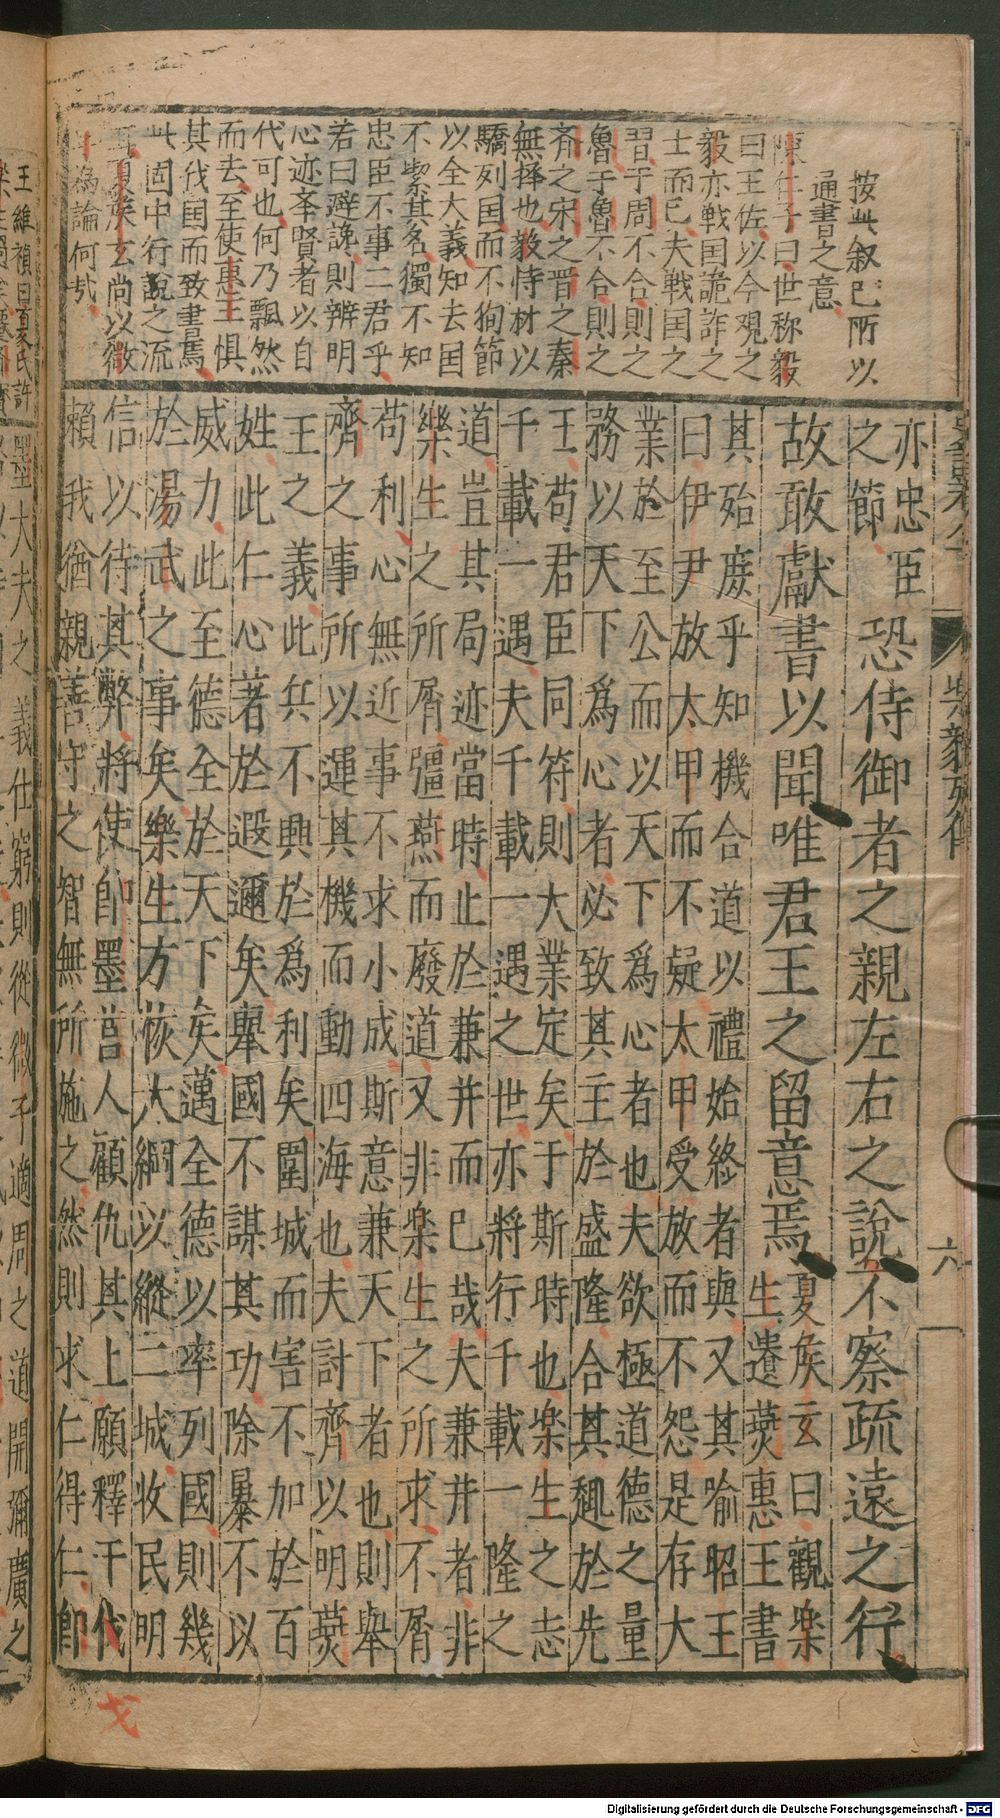 史記卷八十 樂毅列傳 六
按此叙已所以
通書之意
陳仁子曰世称毅
曰王佐以今观之
毅亦戦国詭詐之
士而已夫戦国之
習于周不合則之
魯于魯不合則之
齐之宋之晋之秦
無擇也毅恃材以
驕列国而不狥節
以全大義知去国
不潔其名獨不知
忠臣不事二君乎
若曰避讒則辨明
心迹夲賢者以自
代可也何乃飄然
而去至使惠王惧
其伐国而致書焉
此固中行說之流
耳夏矦玄尚以微
子為論何哉
亦忠臣
之節
恐侍御者之親左右之說不察疏遠之行
故敢獻書以聞唯君王之留意焉
夏矦玄曰觀楽
生遺燕惠王書
其殆庻乎知機合道以禮始終者與又其喻昭王
曰伊尹放太甲而不疑太甲受放而不怨是存大
業於至公而以天下爲心者也夫欲極道德之量
務以天下爲心者必致其主於盛隆合其趣於先
王苟君臣同符則大業定矣于斯時也楽生之志
千載一遇夫千載一遇之世亦將行千載一隆之
道豈其局迹當時止於兼并而已哉夫兼并者非
樂生之所屑彊燕而廢道又非楽生之所求不屑
苟利心無近事不求小成斯意兼天下者也則舉
齊之事所以運其機而動四海也夫討齊以明燕
王之義此兵不興於爲利矣圍城而害不加於百
姓此仁心著於遐邇矣舉國不謀其功除暴不以
威力此至德全於天下矣邁全德以率列國則幾
於湯武之事矣樂生方恢大綱以縱二城收民明
信以待其弊將使卽墨莒人顧仇其上願釋干伐
賴我猶親善守之智無所施之然則求仁得仁卽
王維禎曰夏氏許
墨大夫之義仕窮則從微子適周之道開彌廣之
Digitalisierung gefördert durch die Deutsche Forschungsgemeinschaft - DFG